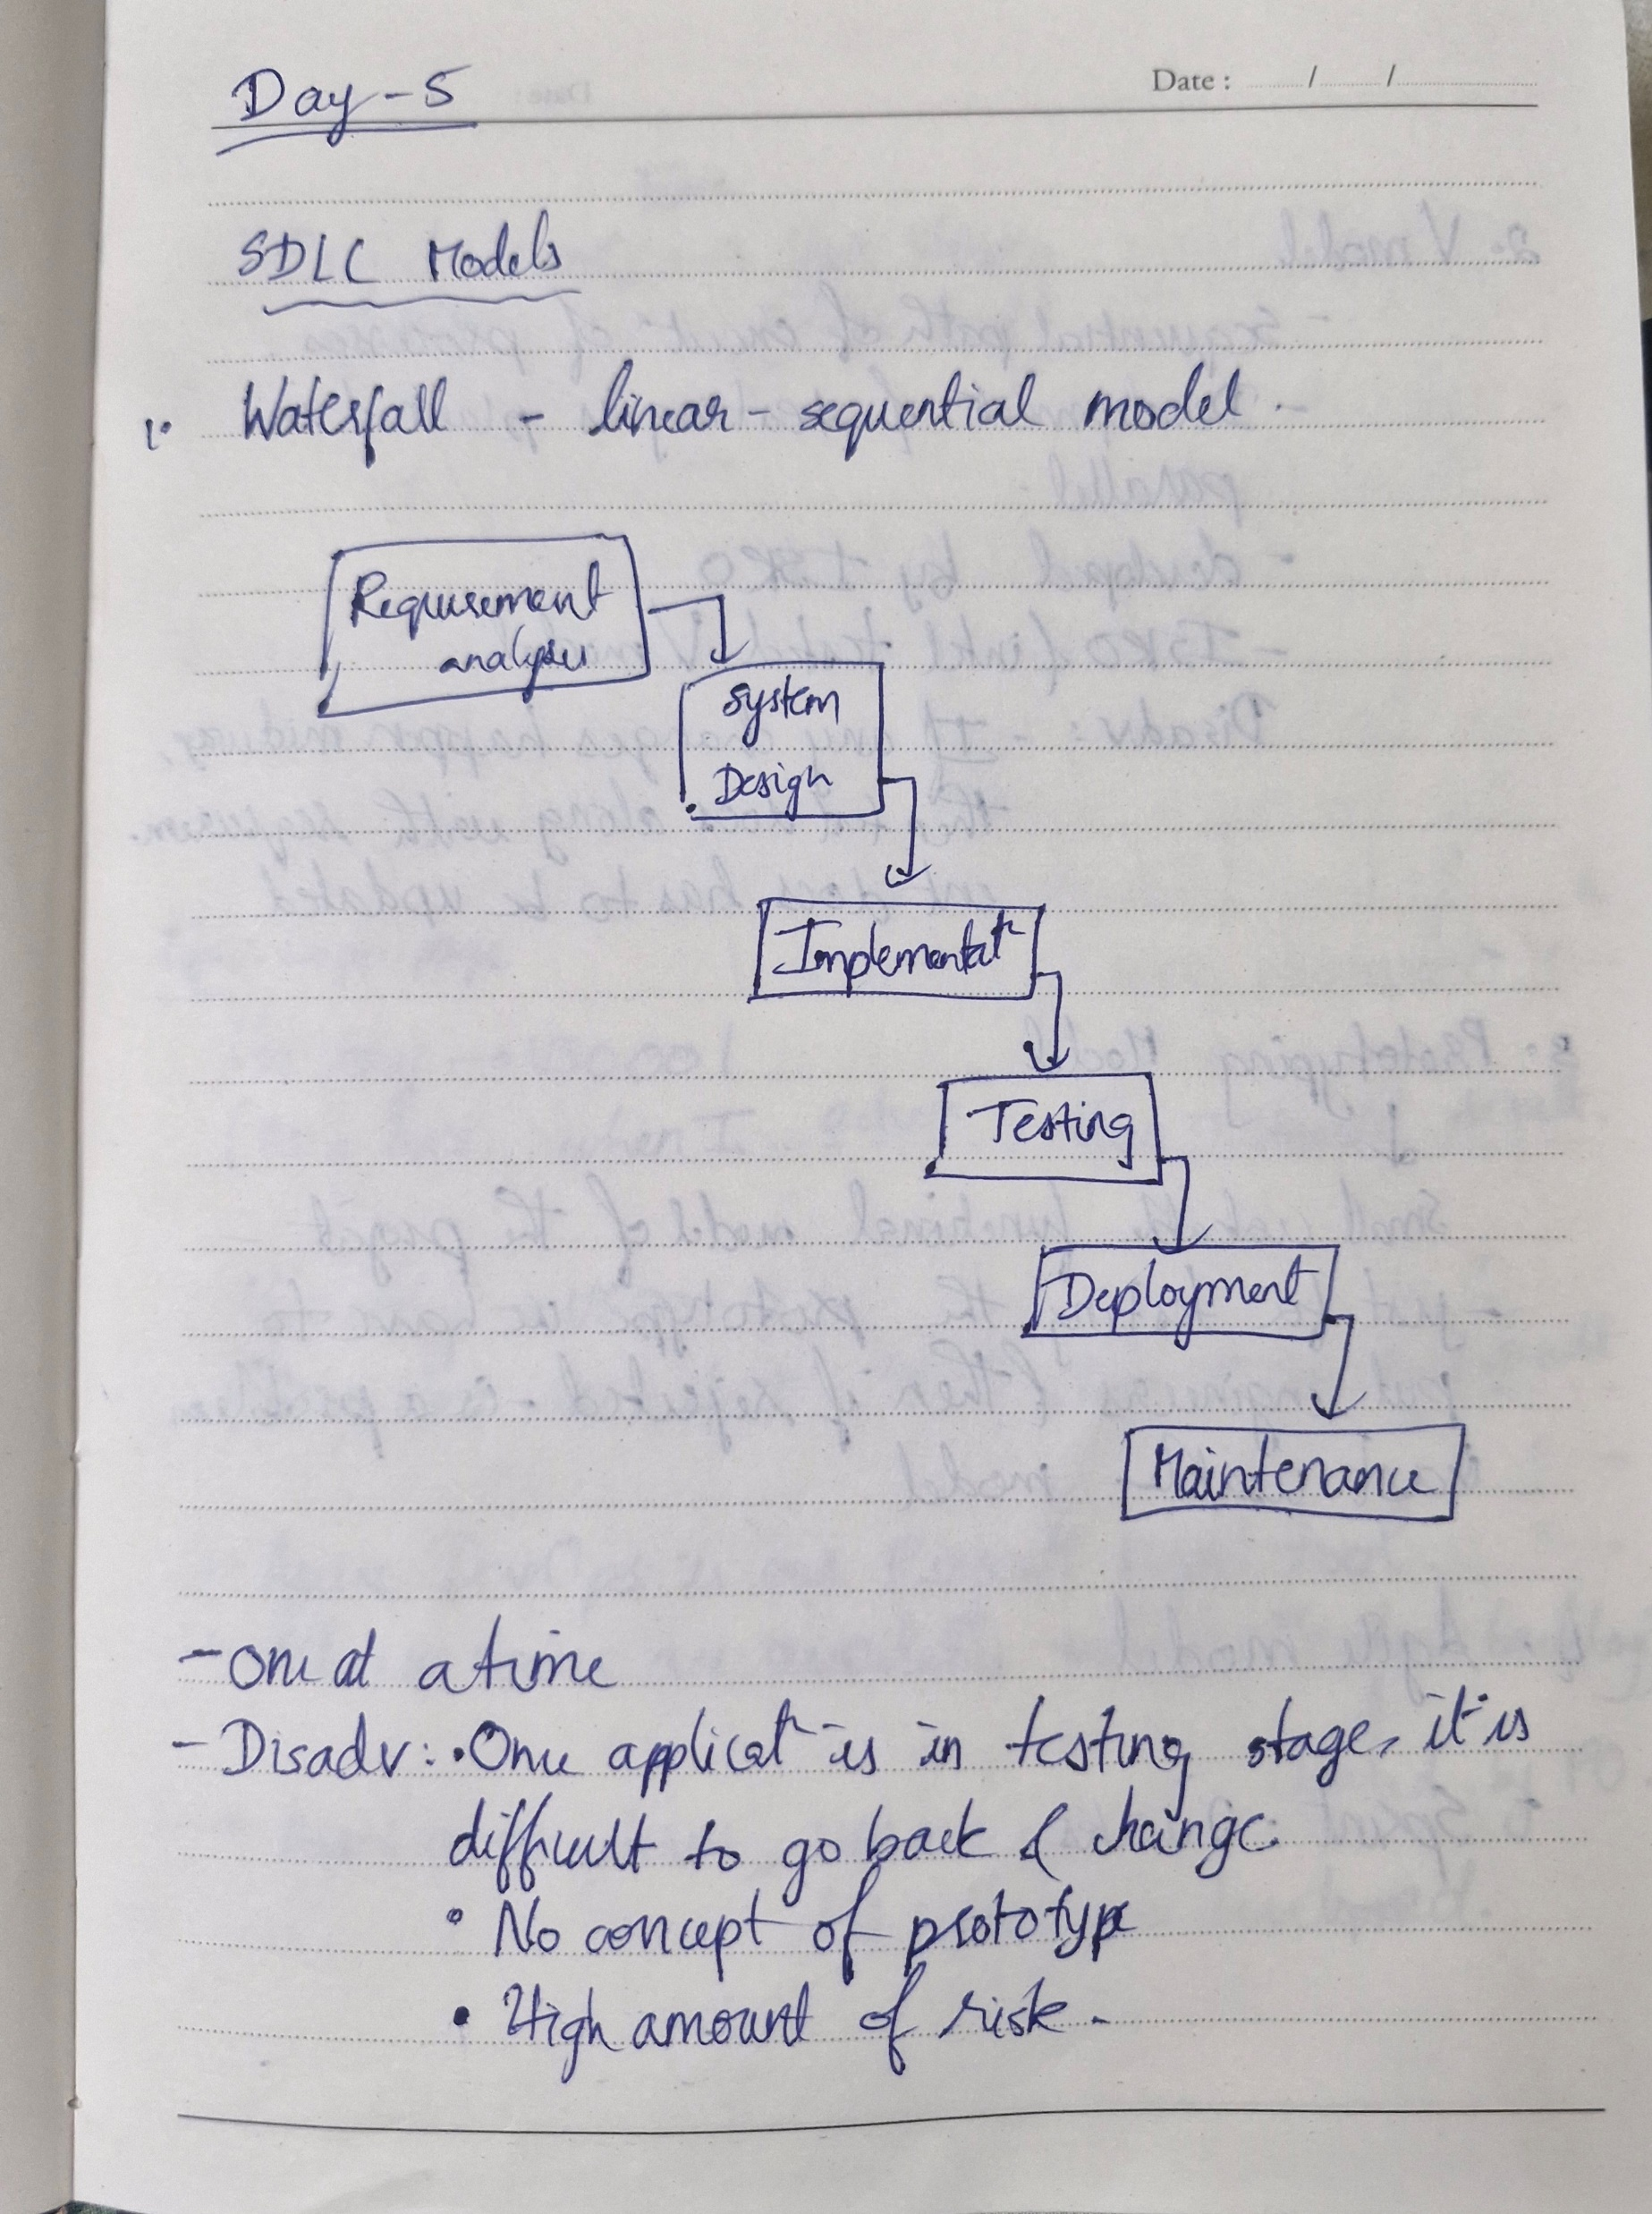 Day - 5
Date : / /
SDLC Models
1. Waterfall - linear - sequential model.
Requirement
analysis
System
Design
Implementatⁿ
Testing
Deployment
Maintenance
- One at a time
- Disadv: • Once applicatⁿ is in testing stage, it is
difficult to go back & change.
• No concept of prototype
• High amount of risk.